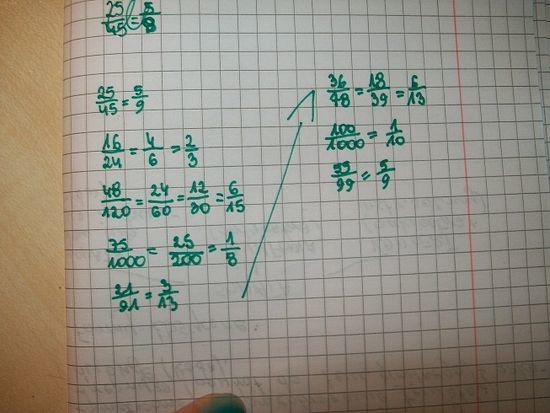 25/45 = 5/9
25/45 = 5/9
16/24 = 4/6 = 2/3
48/120 = 24/60 = 12/30 = 6/15
75/1000 = 25/200 = 1/8
21/91 = 3/13
36/78 = 18/39 = 6/13
100/1000 = 1/10
55/99 = 5/9